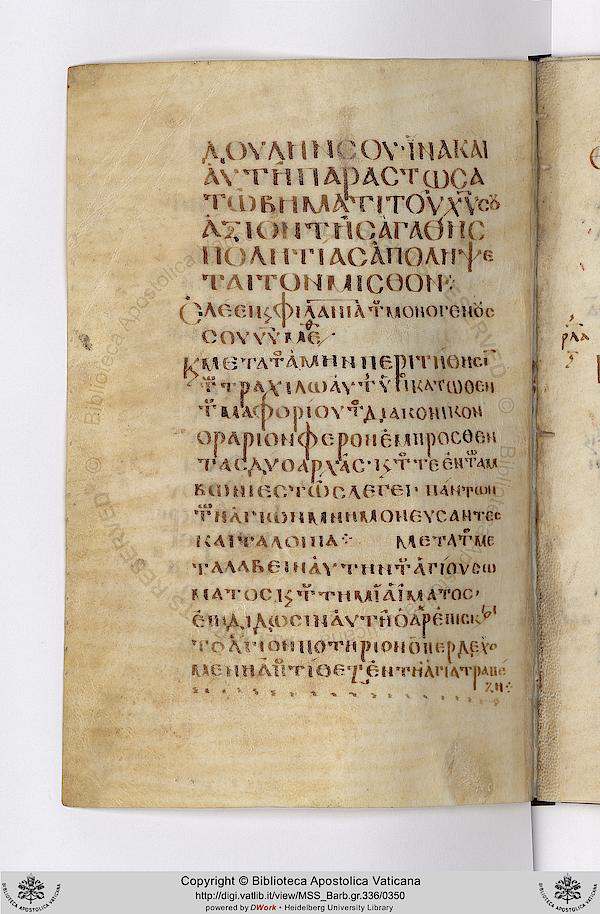 ΔΟΥΛΗΝ ΣΟΥ· ΙΝΑ ΚΑΙ
ΑΥΤΗ ΠΑΡΑΣΤΩΣΑ
ΤΩ ΒΗΜΑΤΙ ΤΟΥ ΧΥ ΣΟΥ
ΑΞΙΟΝ ΤΗΣ ΑΓΑΘΗΣ
ΠΟΛΗΤΙΑΣ ΑΠΟΛΗΨΕ
ΤΑΙ ΤΟΝ ΜΙΣΘΟΝ
ΜΟΝΟΓΕΝΟΣ
ΣΟΥ ΥΥ ΜΕΘ
ΜΕΤΑ ΤΟ ΑΜΗΝ ΠΕΡΙΤΗΘΗΣΙ
ΤΩ ΤΡΑΧΙΛΩ ΑΥΤΗΣ ΥΠΟΚΑΤΩΘΕΝ
ΤΟΥ ΜΑΦΟΡΙΟΥ ΤΟ ΔΙΑΚΟΝΙΚΟΝ
ΟΡΑΡΙΟΝ ΦΕΡΟΝ ΕΜΠΡΟΣΘΕΝ
ΤΑΣ ΔΥΟ ΑΡΧΑΣ· Κ ΤΟΤΕ Ο ΕΝ ΤΩ ΑΜ
ΒΩΝΙ ΕΣΤΩΣ ΛΕΓΕΙ· ΠΑΝΤΩΝ
ΤΩΝ ΑΓΙΩΝ ΜΝΗΜΟΝΕΥΣΑΝΤΕΣ
ΚΑΙ ΤΑ ΛΟΙΠΑ ΜΕΤΑ ΤΟ ΜΕ
ΤΑΛΑΒΕΙΝ ΑΥΤΗΝ ΤΟΥ ΑΓΙΟΥ ΣΩ
ΜΑΤΟΣ Κ ΤΟΥ ΤΗΜΙΟΥ ΑΙΜΑΤΟΣ·
ΕΠΙΔΙΔΩΣΙΝ ΑΥΤΗ Ο ΑΡΧΙΕΠΙΣΚ
ΤΟ ΑΓΙΟΝ ΠΟΤΗΡΙΟΝ ΟΠΕΡ ΔΕΧΟ
ΜΕΝΗ ΑΠΟΤΙΘΕΤΑΙ ΕΝ ΤΗ ΑΓΙΑ ΤΡΑΠΕ
ΖΗ
ρλα
Copyright © Biblioteca Apostolica Vaticana
http://digi.vatlib.it/view/MSS_Barb.gr.336/0350
powered by DWork - Heidelberg University Library